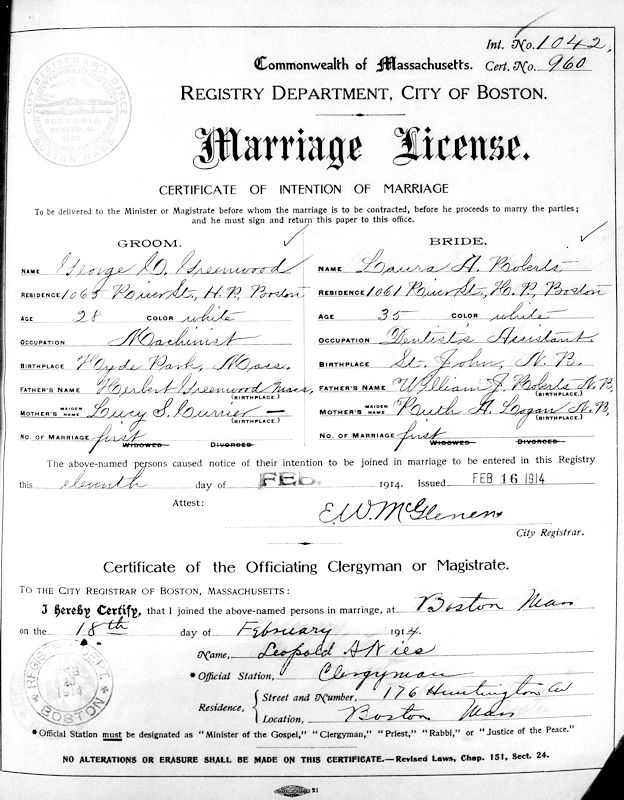 Int. No. 1042,
Commonwealth of Massachusetts. Cert. No. 960
REGISTRY DEPARTMENT, CITY OF BOSTON.
CITY REGISTRAR'S OFFICE
BOSTONIA
CONDITA A.D.
1630.
BOSTON, MASS.
Marriage License.
CERTIFICATE OF INTENTION OF MARRIAGE
To be delivered to the Minister or Magistrate before whom the marriage is to be contracted, before he proceeds to marry the parties;
and he must sign and return this paper to this office.
GROOM.
NAME George O. Greenwood
RESIDENCE 1065 River St., H.P., Boston
AGE 28 COLOR white
OCCUPATION Machinist
BIRTHPLACE Hyde Park, Mass.
FATHER'S NAME Herbert Greenwood Mass,
(BIRTHPLACE.)
MOTHER'S MAIDEN NAME Lucy S. Currier —
(BIRTHPLACE.)
NO. OF MARRIAGE first
WIDOWED DIVORCED
BRIDE.
NAME Laura A. Roberts
RESIDENCE 1061 River St., H.P., Boston
AGE 35 COLOR white
OCCUPATION Dentist's Assistant
BIRTHPLACE St. John, N.B.
FATHER'S NAME William J. Roberts N.B.
(BIRTHPLACE.)
MOTHER'S MAIDEN NAME Ruth A. Logan N.B.
(BIRTHPLACE.)
NO. OF MARRIAGE first
WIDOWED DIVORCED
The above-named persons caused notice of their intention to be joined in marriage to be entered in this Registry
this eleventh day of FEB. 1914. Issued FEB 16 1914
Attest:
E.W. McGlenen
City Registrar.
Certificate of the Officiating Clergyman or Magistrate.
TO THE CITY REGISTRAR OF BOSTON, MASSACHUSETTS:
I Hereby Certify, that I joined the above-named persons in marriage, at Boston Mass
on the 18th day of February 1914.
Name, Leopold A Nies
*Official Station, Clergyman
Residence, Street and Number, 176 Huntington Av
Location, Boston Mass
REGISTRY DEPT.
FEB
1914
BOSTON
*Official Station must be designated as "Minister of the Gospel," "Clergyman," "Priest," "Rabbi," or "Justice of the Peace."
NO ALTERATIONS OR ERASURE SHALL BE MADE ON THIS CERTIFICATE.—Revised Laws, Chap. 151, Sect. 24.
21